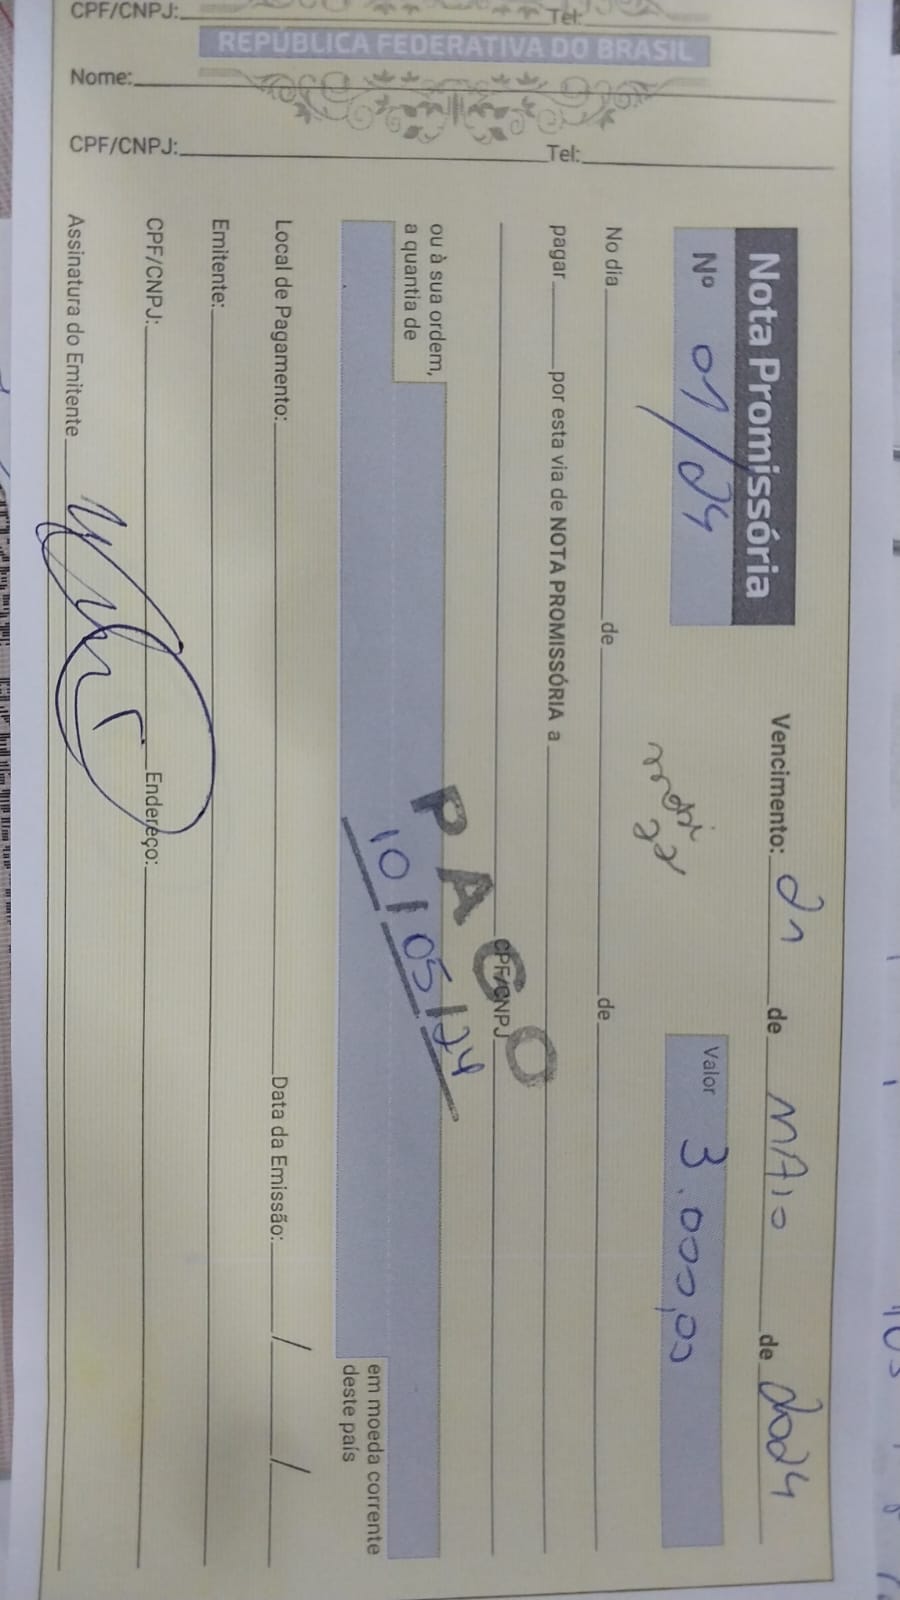 CPF/CNPJ: Tel:
REPÚBLICA FEDERATIVA DO BRASIL
Nome:
CPF/CNPJ: Tel:
Nota Promissória
Vencimento: 21 de MAIO de 2024
Nº 01/24
Valor 3.000,00
No dia de de
pagar por esta via de NOTA PROMISSÓRIA a
CPF/CNPJ
PAGO
10/05/24
ou à sua ordem,
a quantia de
em moeda corrente
deste país
Local de Pagamento: Data da Emissão: / /
Emitente:
CPF/CNPJ: Endereço:
Assinatura do Emitente